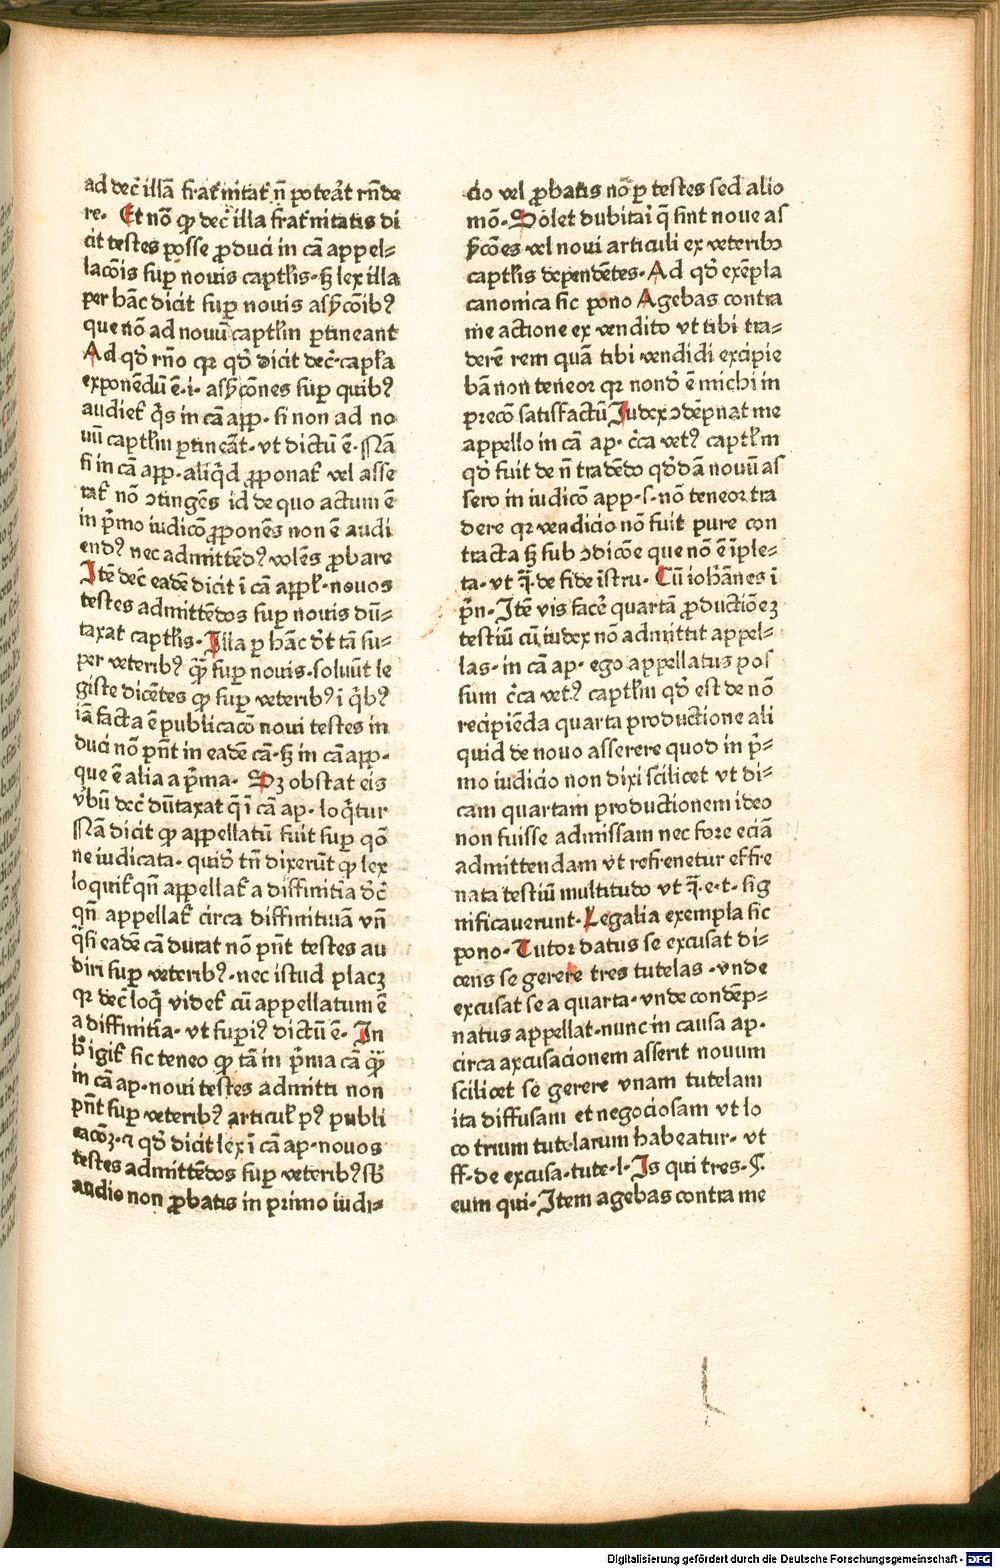 ad dec̄ illā frat̄nitat̄ n̄ poteāt rn̄de
re· Et nō ꝙ dec̄ illa frat̄nitatis di
cit testes posse ꝓduci in cā appel⸗
lacōis suꝑ nouis captłis·sꝫ lex illa
per hāc dicit suꝑ nouis asẜcōib⁊
que nō ad nouū captłm ꝑtineant
Ad qd̄ rn̄o qꝛ qd̄ dicit dec̄·capła
exponēdū ē·i· asẜcōnes suꝑ quib⁊
audiet̄ q̄s in cā apꝑ· si non ad no
uū captłm ꝑtineāt·vt dictū ē·Nā
si in cā apꝑ·aliq̄d ꝓponat̄ vel asse
rat̄ nō ↄtingēs id de quo actum ē
in p̄mo iudicō ꝓponēs non ē audi
end⁊ nec admittēd⁊ volēs ꝓbare
Itē dec̄ eadē dicit ī cā appł·nouos
testes admittēdos suꝑ nouis dū⸗
taxat captłis·Illa ꝑ hāc dr̄t tā su⸗
per veterib⁊ q̄ꝫ suꝑ nouis·soluūt le
giste dicētes ꝙ suꝑ veterib⁊ ī q̄b⁊
iā facta ē publicacō noui testes in
duci nō pn̄t in eadē cā·sꝫ in cā apꝑ·
que ē alia a p̄ma· Sꝫ obstat eis
v̄bū dec̄ dūtaxat q̄ ī cā ap·loq̄tur
Nā dicit ꝙ appellatū fuit suꝑ qōne
ne iudicata·quid̄ tn̄ dixerūt ꝙ lex
loquit̄ qn̄ appellat̄ a diffinitīa d̄c̄
qn̄ appellat̄ circa diffinitiuā vn̄
q̄si eadē cā durat nō pn̄t testes au
diri suꝑ veterib⁊·nec istud placꝫ
qꝛ dec̄ loq̄ videt̄ cū appellatum ē
a diffinitīa·vt supi⁊ dictū ē· In
h̄ igit̄ sic teneo ꝙ tā in p̄ma cā q̄ꝫ
in cā ap·noui testes admitti non
pn̄t suꝑ veterib⁊ articuł p⁊ publi
cacōꝫ·⁊ qd̄ dicit lex ī cā ap·nouos
testes admittēdos suꝑ veterib⁊ sb̄
audio non ꝓbatis in primo iudi⸗
cio vel ꝓbatis nō ꝑ testes sed alio
mō·Solet dubitari q̄ sint noue as
ẜcōes vel noui articuli ex veteribꝫ
captłis dependētes·Ad qd̄ exēpla
canonica sic pono Agebas contra
me actione ex vendito vt tibi tra⸗
derē rem quā tibi vendidi excipie
bā non teneor qꝛ nond̄ ē michi in
precō satisfactū Iudex ↄdēpnat me
appello in cā ap· c̄ca vet⁊ captłm
qd̄ fuit de n̄ tradēdo qd̄dā nouū as
sero in iudicō app·s·nō teneor tra
dere qꝛ vendicio nō fuit pure con
tracta sꝫ sub ↄdicōe que nō ē īple⸗
ta·vt q̄·de fide īstru·Cū iohānes ī
pn̄·Itē vis facē quartā ꝓductiōeꝫ
testiū cū iudex nō admittit appel⸗
las·in cā ap·ego appellatus pos
sum c̄ca vet⁊ captłm qd̄ est de nō
recipiēda quarta productione ali
quid de nouo asserere quod in p̄⸗
mo iudicio non dixi scilicet vt di⸗
cam quartam productionem ideo
non fuisse admissam nec fore eciā
admittendam vt refrenetur effre
nata testiū multitudo vt q̄·e·t·sig
nificauerunt·Legalia exempla sic
pono·Tutor datus se excusat di⸗
cens se gerere tres tutelas·vnde
excusat se a quarta·vnde condēp⸗
natus appellat·nunc in causa ap·
circa axcusacionem asserit nouum
scilicet se gerere vnam tutelam
ita diffusam et negociosam vt lo
co trium tutelarum habeatur·vt
ff·de excusa·tute·l·Is qui tres·§·
eum qui·Item agebas contra me
Digitalisierung gefördert durch die Deutsche Forschungsgemeinschaft - DFG